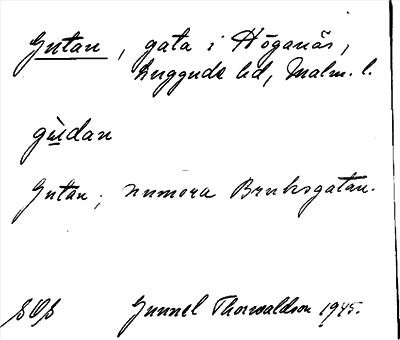 Gutan, gata i Höganäs,
Luggude hd, Malm. l.
gùdan
Gutan; numera Bruksgatan.
SOS Gunnel Thorwaldson 1945.